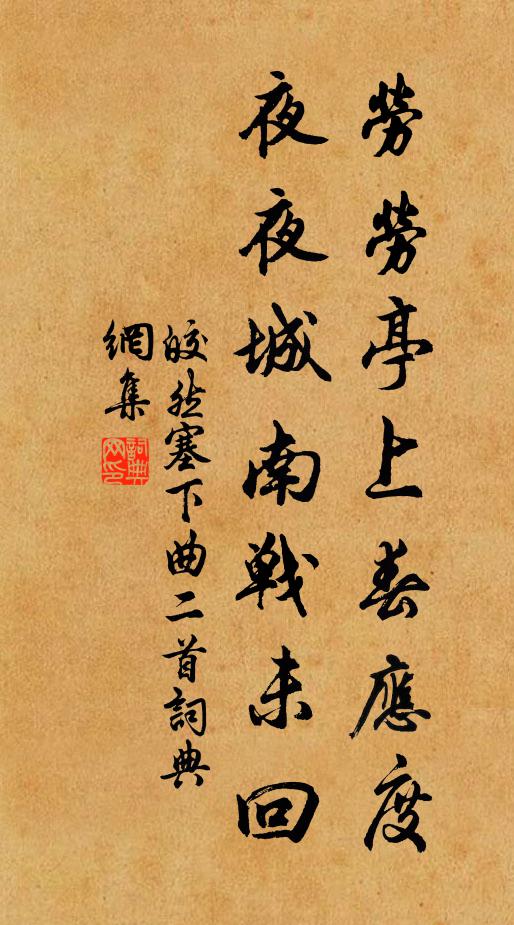 勞勞亭上春應度
夜夜城南戰未回
皎然塞下曲二首詞典
網集
詞典
网印